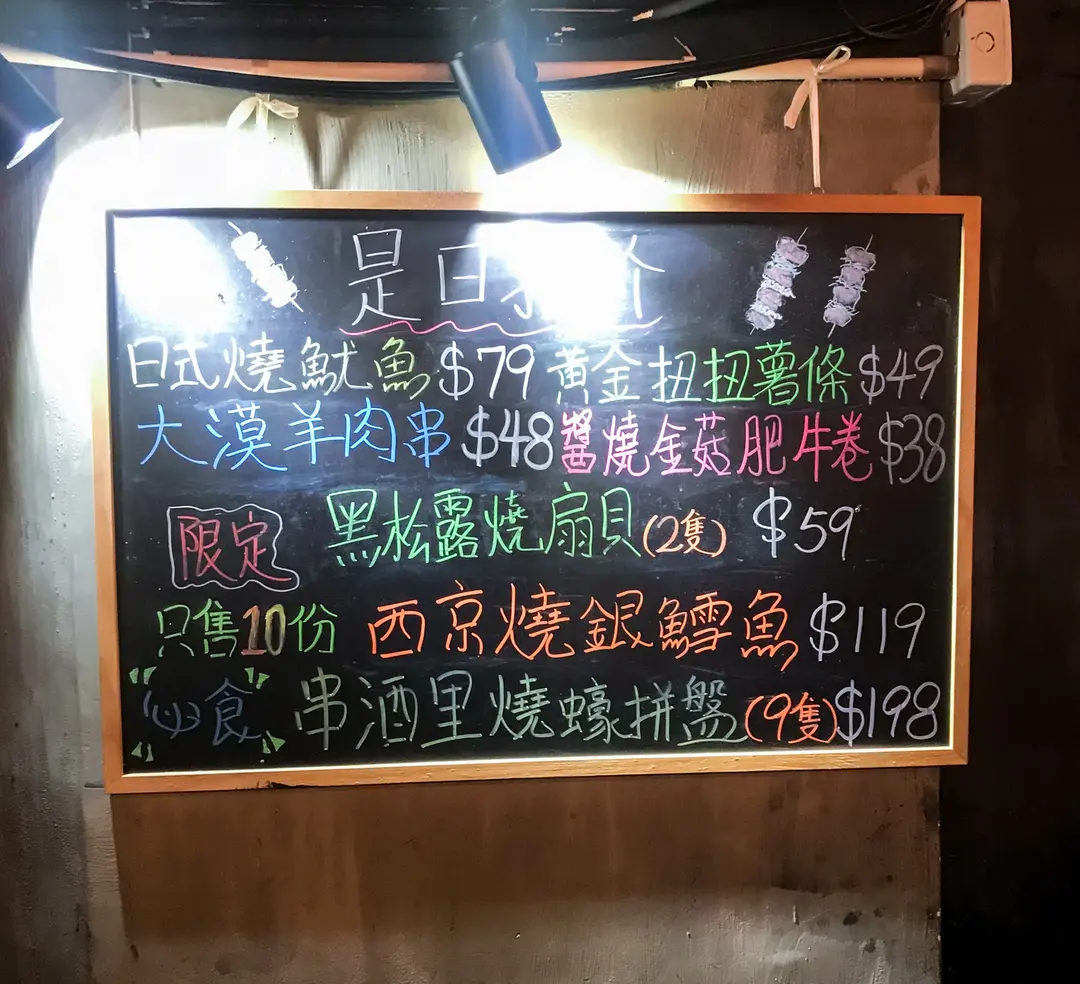 是日
日式燒魷魚 $79 黃金扭扭薯條 $49
大漠羊肉串 $48 醬燒金菇肥牛卷 $38
限定 黑松露燒扇貝(2隻) $59
只售10份 西京燒銀鱈魚 $119
必食 串酒里燒蠔拼盤(9隻) $198